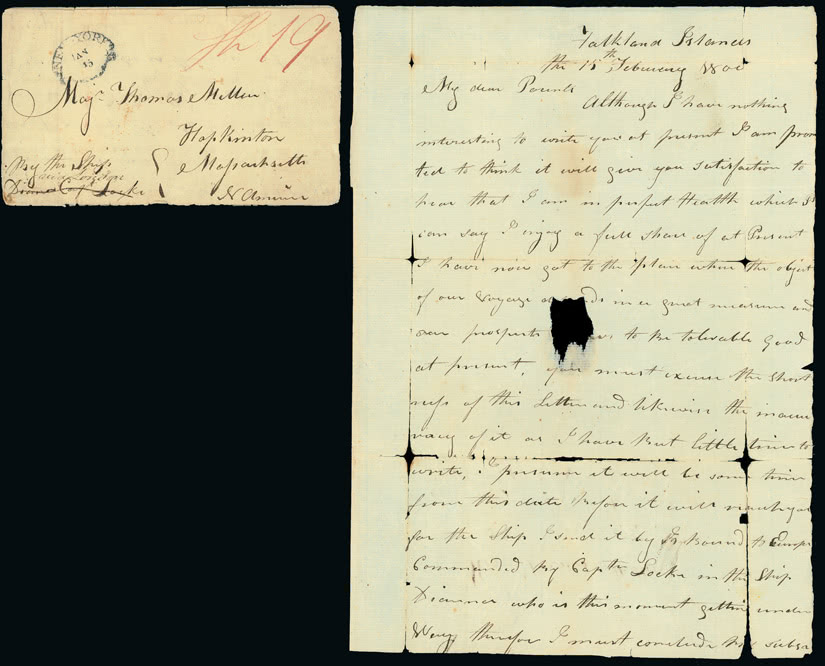 NEW YORK
JAN
15
Sh 19
Majr Thomas Mellen
Hopkinton
Massachsetts
N America
By the Ship
Dianna Capt Locke
Falkland Islands
the 15th February 1800
My dear Parents
Although I have nothing
interesting to write you at present I am prom
ted to think it will give you satisfaction to
hear that I am in perfect Health which I
can say I enjoy a full share of at Present
I have now got to the place where the object
of our Voyage in a great measure and
our prospects to be tolerable good
at present, you must excuse the short
ness of this Letter and likewise the inaccu
racy of it as I have But little time to
write, I presume it will be some time
from this date before it will reach you
for the Ship I send it by Is bound to Europe
Commanded by Capt Locke in the Ship
Dianna who is this moment getting under
Way, therefor I must conclude by subsc